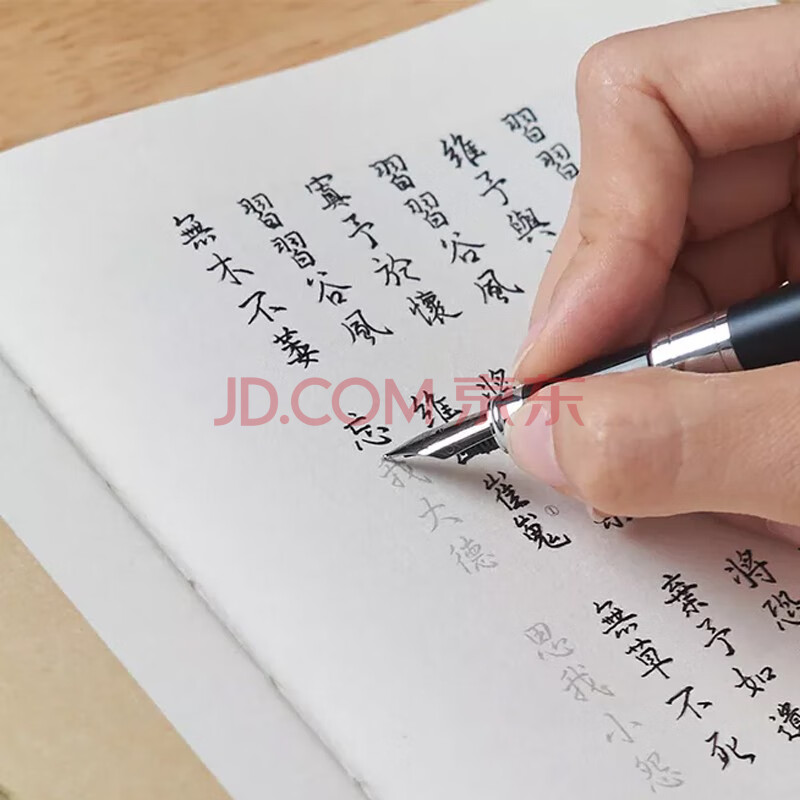 習習
維予與
習習谷風 將恐
寘予於懷 將 棄予如遺
習習谷風 維山崔嵬① 無草不死
無木不萎 忘我大德 思我小怨
JD.COM 京东